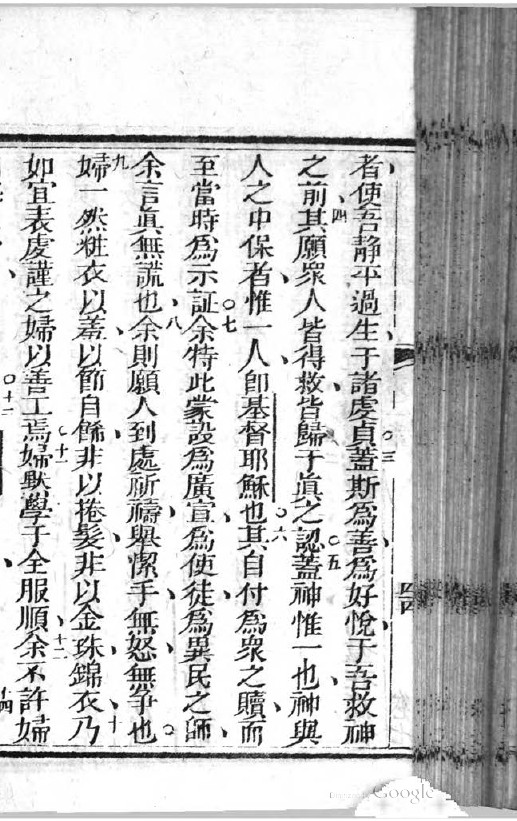 者使吾静平過生于諸虔貞蓋斯為善為好悅于吾救神
之前其願衆人皆得救皆歸于眞之認蓋神惟一也神與
人之中保者惟一人卽基督耶穌也其自付為衆之贖而
至當時為示証余特此蒙設為廣宣為使徒為異民之師
余言眞無謊也余則願人到處所禱舉潔手無怒無爭也
婦一然粧衣以羞以節自餙非以捲髮非以金珠錦衣乃
如宜表虔謹之婦以善工焉婦默學于全服順余不許婦
Google